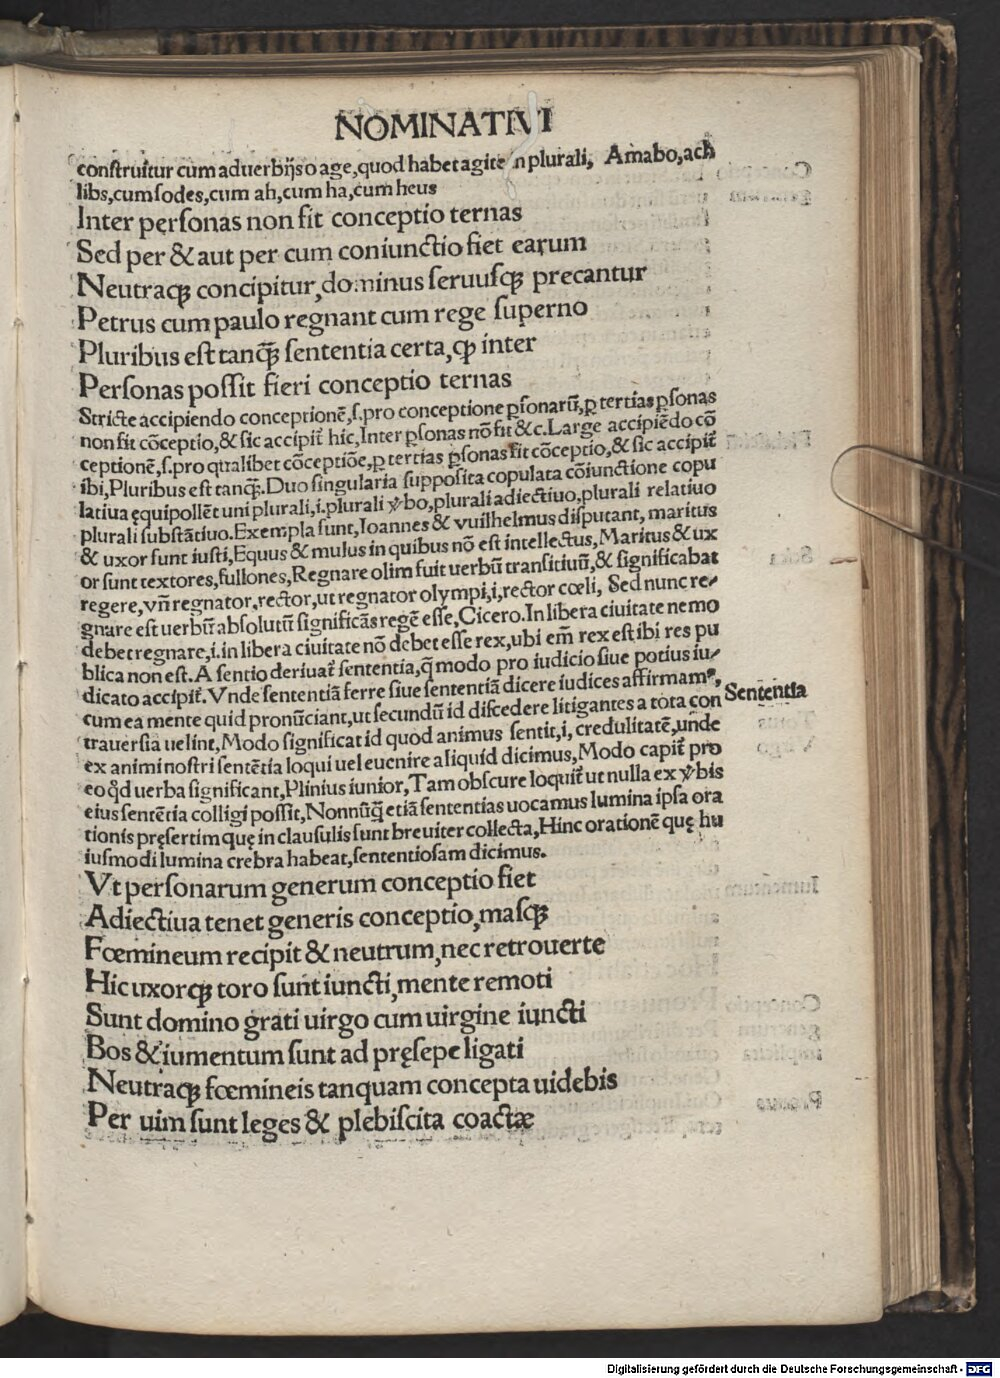 NOMINATIVI
construitur cum aduerbijs o age,quod habet agite in plurali, Amabo,ach
libs,cum sodes,cum ah,cum ha,cum heus
Inter personas non fit conceptio ternas
Sed per & aut per cum coniunctio fiet earum
Neutraqꝫ concipitur,dominus seruusqꝫ precantur
Petrus cum paulo regnant cum rege superno
Pluribus est tanqꝫ̃ sententia certa,ꝙ inter
Personas possit fieri conceptio ternas
Stricte accipiendo conceptionē,s.pro conceptione ꝑsonarū,ꝑ tertias ꝑsonas
non fit cōceptio,& sic accipit̃ hic,Inter ꝑsonas nō fit &c.Large accipiēdo cō
ceptionē,s.pro qualibet cōceptiōe,ꝑ tertias ꝑsonas fit cōceptio,& sic accipit̃
ibi,Pluribus est tanqꝫ̃.Duo singularia supposita copulata cōiunctione copu
latiua ęquipollēt uni plurali,i.plurali ꝟbo,plurali adiectiuo,plurali relatiuo
plurali substātiuo.Exempla sunt,Ioannes & vuilhelmus disputant, maritus
& uxor sunt iusti,Equus & mulus in quibus nō est intellectus,Maritus & ux
or sunt textores,fullones,Regnare olim fuit uerbū transitiuū,& significabat
regere,vñ regnator,rector,ut regnator olympi,i,rector cœli, Sed nunc re/
gnare est uerbū absolutū significās regē esse,Cicero.In libera ciuitate nemo
debet regnare,i.in libera ciuitate nō debet esse rex,ubi em̄ rex est ibi res pu
blica non est.A sentio deriuat̃ sententia,q̃ modo pro iudicio siue potius iu/
dicato accipit̃.Vnde sententiā ferre siue sententiā dicere iudices affirmamꝰ,
Sententia
cum ea mente quid pronūciant,ut secundū id discedere litigantes a tota con
trauersia uelint,Modo significat id quod animus sentit,i,credulitatē,unde
ex animi nostri sentētia loqui uel euenire aliquid dicimus,Modo capit̃ pro
eo qd̃ uerba significant,Plinius iunior,Tam obscure loquit̃ ut nulla ex ꝟbis
eius sentētia colligi possit,Nonnūq̃ etiā sententias uocamus lumina ipsa ora
tionis pręsertim quę in clausulis sunt breuiter collecta,Hinc orationē quę hu
iusmodi lumina crebra habeat,sententiosam dicimus.
Vt personarum generum conceptio fiet
Adiectiua tenet generis conceptio,masqꝫ
Fœmineum recipit & neutrum,nec retrouerte
Hic uxorqꝫ toro sunt iuncti,mente remoti
Sunt domino grati uirgo cum uirgine iuncti
Bos & iumentum sunt ad pręsepe ligati
Neutraqꝫ fœmineis tanquam concepta uidebis
Per uim sunt leges & plebiscita coactæ
Digitalisierung gefördert durch die Deutsche Forschungsgemeinschaft - DFG